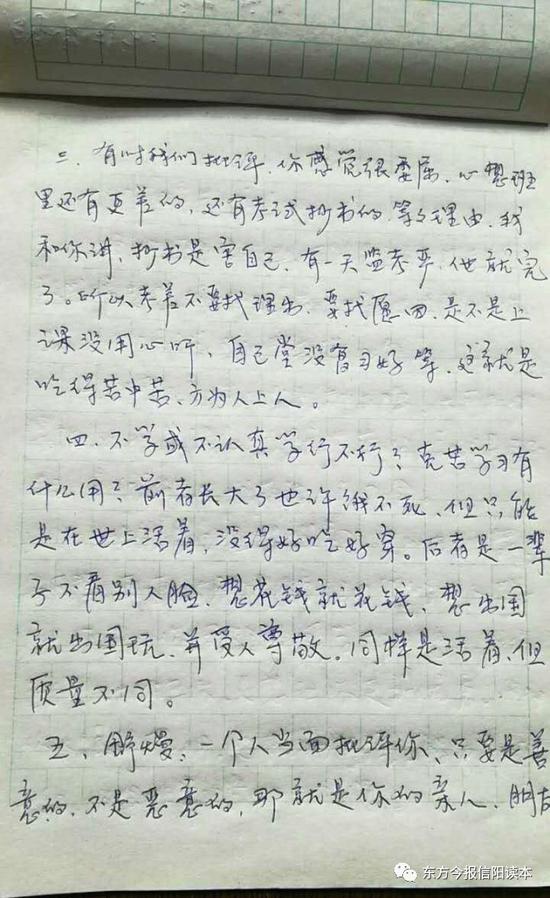 三、有时我们批评、你感觉很委屈、心想班
里还有更差的、还有考试抄书的、等等理由、我
和你讲、抄书是害自己、有一天监考严、他就完
了。所以考差不要找理由、要找原因、是不是上
课没用心听、自己堂没复习好等、这就是
吃得苦中苦、方为人上人。
四、不学或不认真学行不行？克苦学习有
什么用？前者长大了也许饿不死、但只能
是在世上活着、没得好吃好穿。后者是一辈
子不看别人脸、想花钱就花钱、想出国
就出国玩、并受人尊敬。同样是活着、但
质量不同。
五、 一个人当面批评你、只要是善
意的、不是恶意的、那就是你的亲人、朋友
东方今报信阳读本